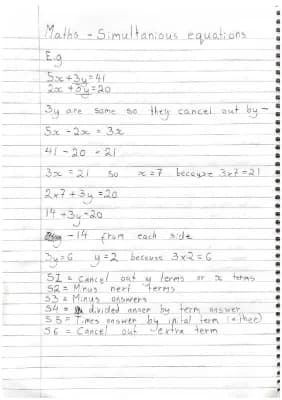 Maths - Simultanious equations
E.g
5x + 3y = 41
2x + 3y = 20
3y are same so they cancel out by -
5x - 2x = 3x
41 - 20 = 21
3x = 21 so x = 7 because 3x7 = 21
2x7 + 3y = 20
14 + 3y = 20
- 14 from each side
3y = 6 y = 2 because 3x2 = 6
S1 = Cancel out y terms or x terms
S2 = Minus terms
S3 = Minus answers
S4 = divided anser by term answer
S5 = Times answer by inital term (either)
S6 = Cancel out extra term